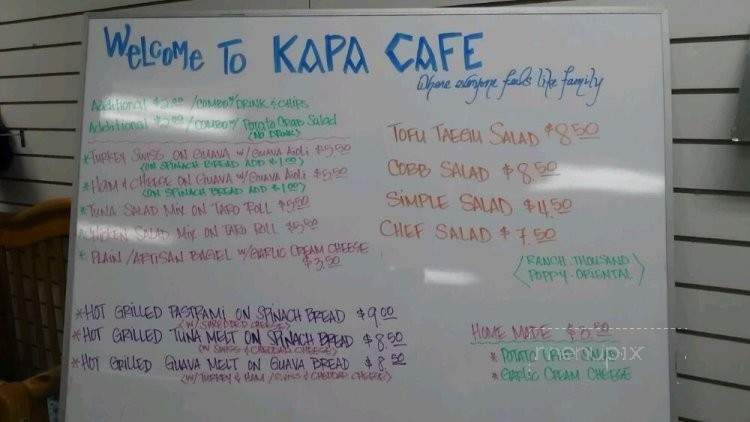 WELCOME TO KAPA CAFE
Where everyone feels like family
Additional $2.00 /COMBO W/ DRINK & CHIPS
Additional $2.00 /COMBO W/ Potato Crab Salad
(NO DRINK)
* TURKEY SWISS ON GUAVA W/ GUAVA AIOLI $5.50
(ON SPINACH BREAD ADD $1.00)
* HAM & CHEESE ON GUAVA W/ GUAVA AIOLI $5.50
(ON SPINACH BREAD ADD $1.00)
* TUNA SALAD MIX ON TARO ROLL $5.50
* CHICKEN SALAD MIX ON TARO ROLL $5.50
* PLAIN / ARTISAN BAGEL W/ GARLIC CREAM CHEESE
$3.50
TOFU TAEGU SALAD $8.50
COBB SALAD $8.50
SIMPLE SALAD $4.50
CHEF SALAD $7.50
<RANCH · THOUSAND
POPPY · ORIENTAL>
* HOT GRILLED PASTRAMI ON SPINACH BREAD $9.00
<W/ SHREDDED CHEESE>
* HOT GRILLED TUNA MELT ON SPINACH BREAD $8.50
(W/ SWISS & CHEDDAR CHEESE)
* HOT GRILLED GUAVA MELT ON GUAVA BREAD $8.50
<W/ TURKEY & HAM / SWISS & CHEDDAR CHEESE>
HOME MADE $3.50
* POTATO CRAB SALAD
* GARLIC CREAM CHEESE
menupix